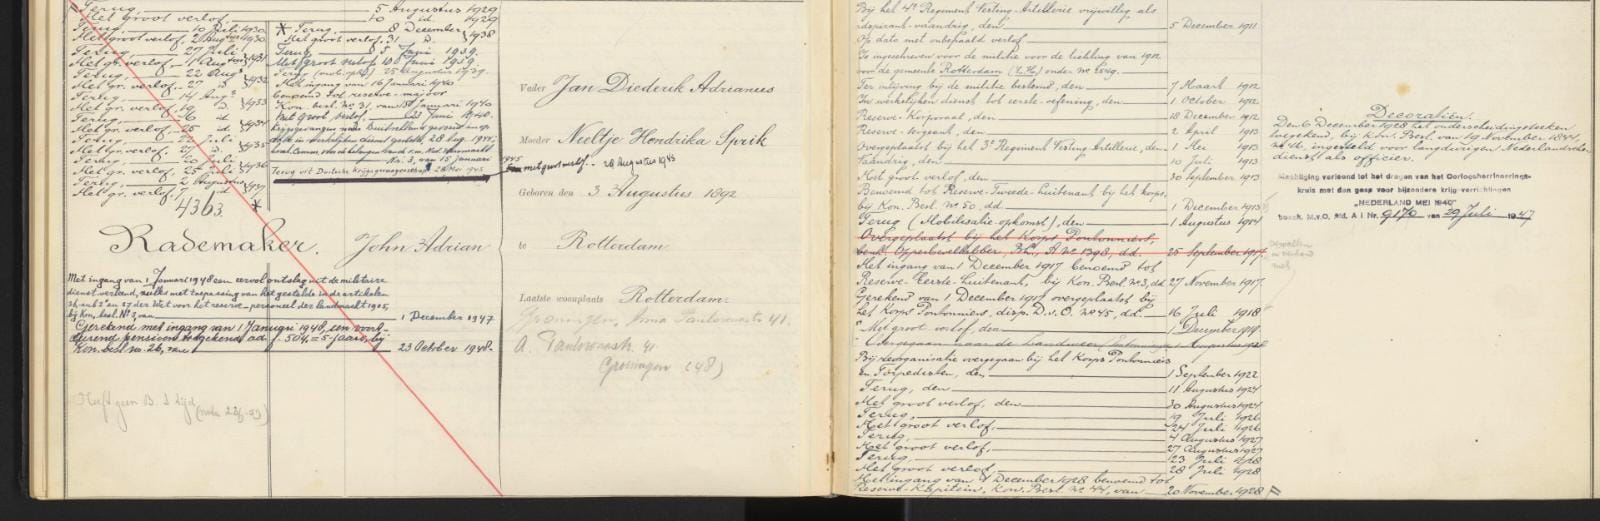 Terug, 5 Augustus 1929
Met groot verlof, 10 id. 1929
Terug, 10 Juli 1930
Met groot verlof, 2 Augustus 1930
Terug, 27 Juli
Met gr. verlof, 1 Augustus 1931
Terug, 22 Aug.
Met gr. verlof, 27 id. 1932
Terug, 14 Aug.
Met gr. verlof, 19 id. 1933
Terug,
Met gr. verlof, 25 id 1934
Terug, Juli
Met gr. verlof, 1935
Terug, 20 Juli
Met gr. verlof, 25 Juli 1936
Terug, 2 Augustus
Met gr. verlof,
4363. *
* Terug, 8 December
Met groot verlof, 31 D. 1938
Terug, 5 Juni 1939.
Met groot verlof 10 Juni 1939.
Terug 25 Augustus 1939.
Met ingang van 16 Januari 1940
benoemd tot reserve-majoor
Kon. besl. No. 31, van 15 Januari 1940
Met groot verlof, Juni 1940.
No. 3, van 15 Januari 1945
Terug uit Duitsche krijgsgevangenschap 1945
met groot verlof - 28 Augustus 1945
Rademaker. John Adrian
Met ingang van 1 Januari 1948 een eervol ontslag uit de militaire
dienst verleend, zulks met toepassing van het gestelde in de artikelen
en 57 der Wet voor het reserve-personeel der landmacht 1905,
bij Kon. besl. No. 3, van 1 December 1947
Gerekend met ingang van 1 Januari 1948, een voort-
durend pensioen toegekend ad f. 504,= 's-jaars, bij
Kon. besl. no. 26, van 23 October 1948.
Heeft geen B. S tijd
Vader Jan Diederik Adrianus
Moeder Neeltje Hendrika Sprik
Geboren den 3 Augustus 1892
te Rotterdam
Laatste woonplaats Rotterdam.
Groningen, Anna Paulownastr 41.
A. Paulownastr. 41
Groningen (48)
Bij het 4e Regiment Vesting-Artillerie vrijwillig als
adspirant-vaandrig, den 5 December 1911
Op dato met onbepaald verlof
Is ingeschreven voor de militie voor de lichting van 1912
voor de gemeente Rotterdam (Z.H.) onder No. 2549.
Ter inlijving bij de militie bestemd, den 7 Maart 1912
In werkelijken dienst tot eerste-oefening, den 1 October 1912
Reserve-Korporaal, den 18 December 1912
Reserve-Sergeant, den 2 April 1913
Overgeplaatst bij het 3e Regiment Vesting-Artillerie, den 1 Mei 1913
Vaandrig, den 10 Juli 1913
Met groot verlof, den 30 September 1913
Benoemd tot Reserve-Tweede-Luitenant bij het korps,
bij Kon. Besl. No. 50, dd. 1 December 1913
Terug (Mobilisatie-opkomst), den 1 Augustus 1914
Overgeplaatst bij het Korps Pontonniers,
besch. Opperbevelhebber, Bh., A No. 1398, dd. 25 September 1917.
Met ingang van 1 December 1917 benoemd tot
Reserve-Eerste-Luitenant, bij Kon. Besl. No. 3, dd. 27 November 1917.
Gerekend van 1 December 1917 overgeplaatst bij
het Korps Pontonniers, disp. D.v.O. No. 45, dd. 16 Juli 1918
Met groot verlof, den 1 December 1918.
Overgegaan naar de Landweer
Bij reorganisatie overgegaan bij het Korps Pontonniers
en Torpedisten, den 1 September 1922
Terug, den 11 Augustus 1924
Met groot verlof, den 30 Augustus 1924
Terug, 19 Juli 1926
Met groot verlof, 24 Juli 1926
Terug, 4 Augustus 1927
Met groot verlof, 27 Augustus 1927
Terug, 23 Juli 1928
Met groot verlof, 28 Juli 1928
Met ingang van 1 December 1928 benoemd tot
Reserve-Kapitein, Kon. Besl. No. 44, van 20 November 1928
vervallen
in verband
met
Decoratiën.
Den 6 December 1928 het onderscheidingsteeken
toegekend, bij Kon. Besl. van 19 November 1844,
No. 41, ingesteld voor langdurigen Nederlandschen
dienst als officier.
Machtiging verleend tot het dragen van het Oorlogsherinnerings-
kruis met den gesp voor bijzondere krijgs-verrichtingen
„NEDERLAND MEI 1940"
besch. M.v.O. Afd. A I Nr. 917 van 29 Juli 1947